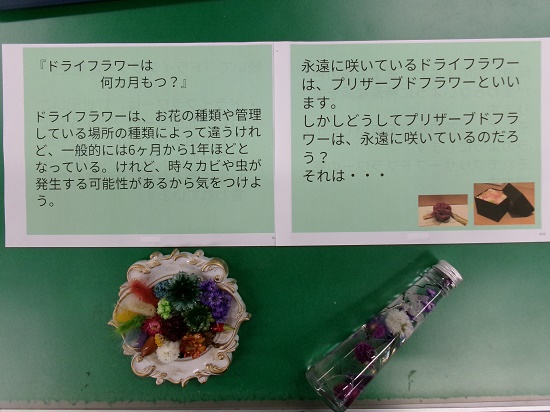 『ドライフラワーは
何カ月もつ？』
ドライフラワーは、お花の種類や管理
している場所の種類によって違うけれ
ど、一般的には6ヶ月から1年ほどと
なっている。けれど、時々カビや虫が
発生する可能性があるから気をつけよ
う。
永遠に咲いているドライフラワー
は、プリザーブドフラワーといい
ます。
しかしどうしてプリザーブドフラ
ワーは、永遠に咲いているのだろ
う？
それは・・・